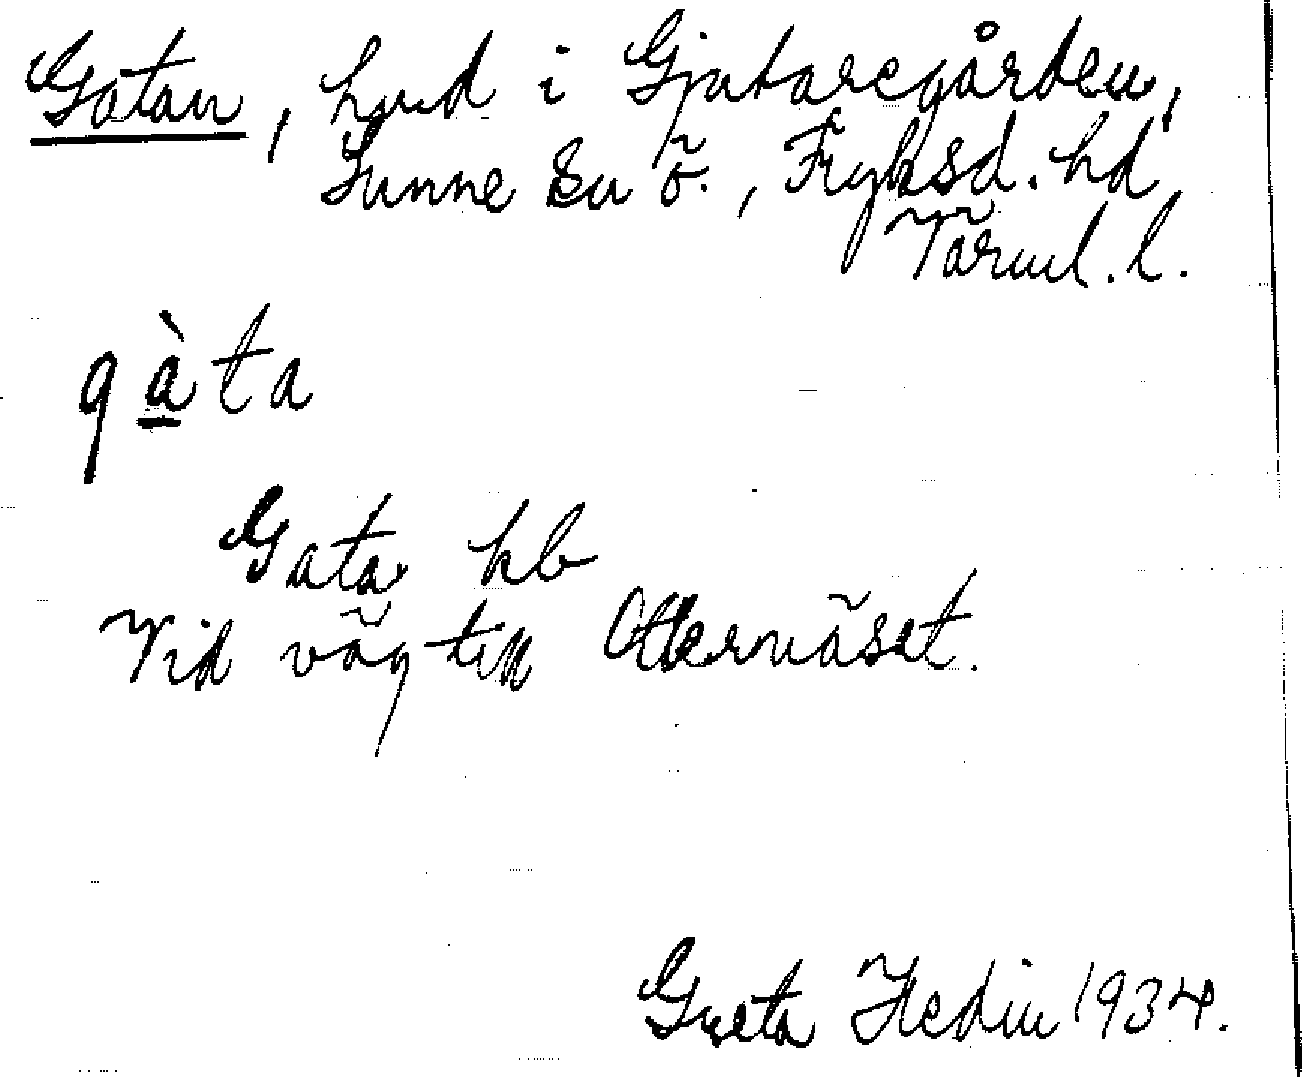 Gatan, hmd i Gjutaregården,
Sunne sn ö., Fryksd. hd,
Värml. l.
gàta
Gata hb
Vid väg till Otternäset.
Greta Hedin 1934.